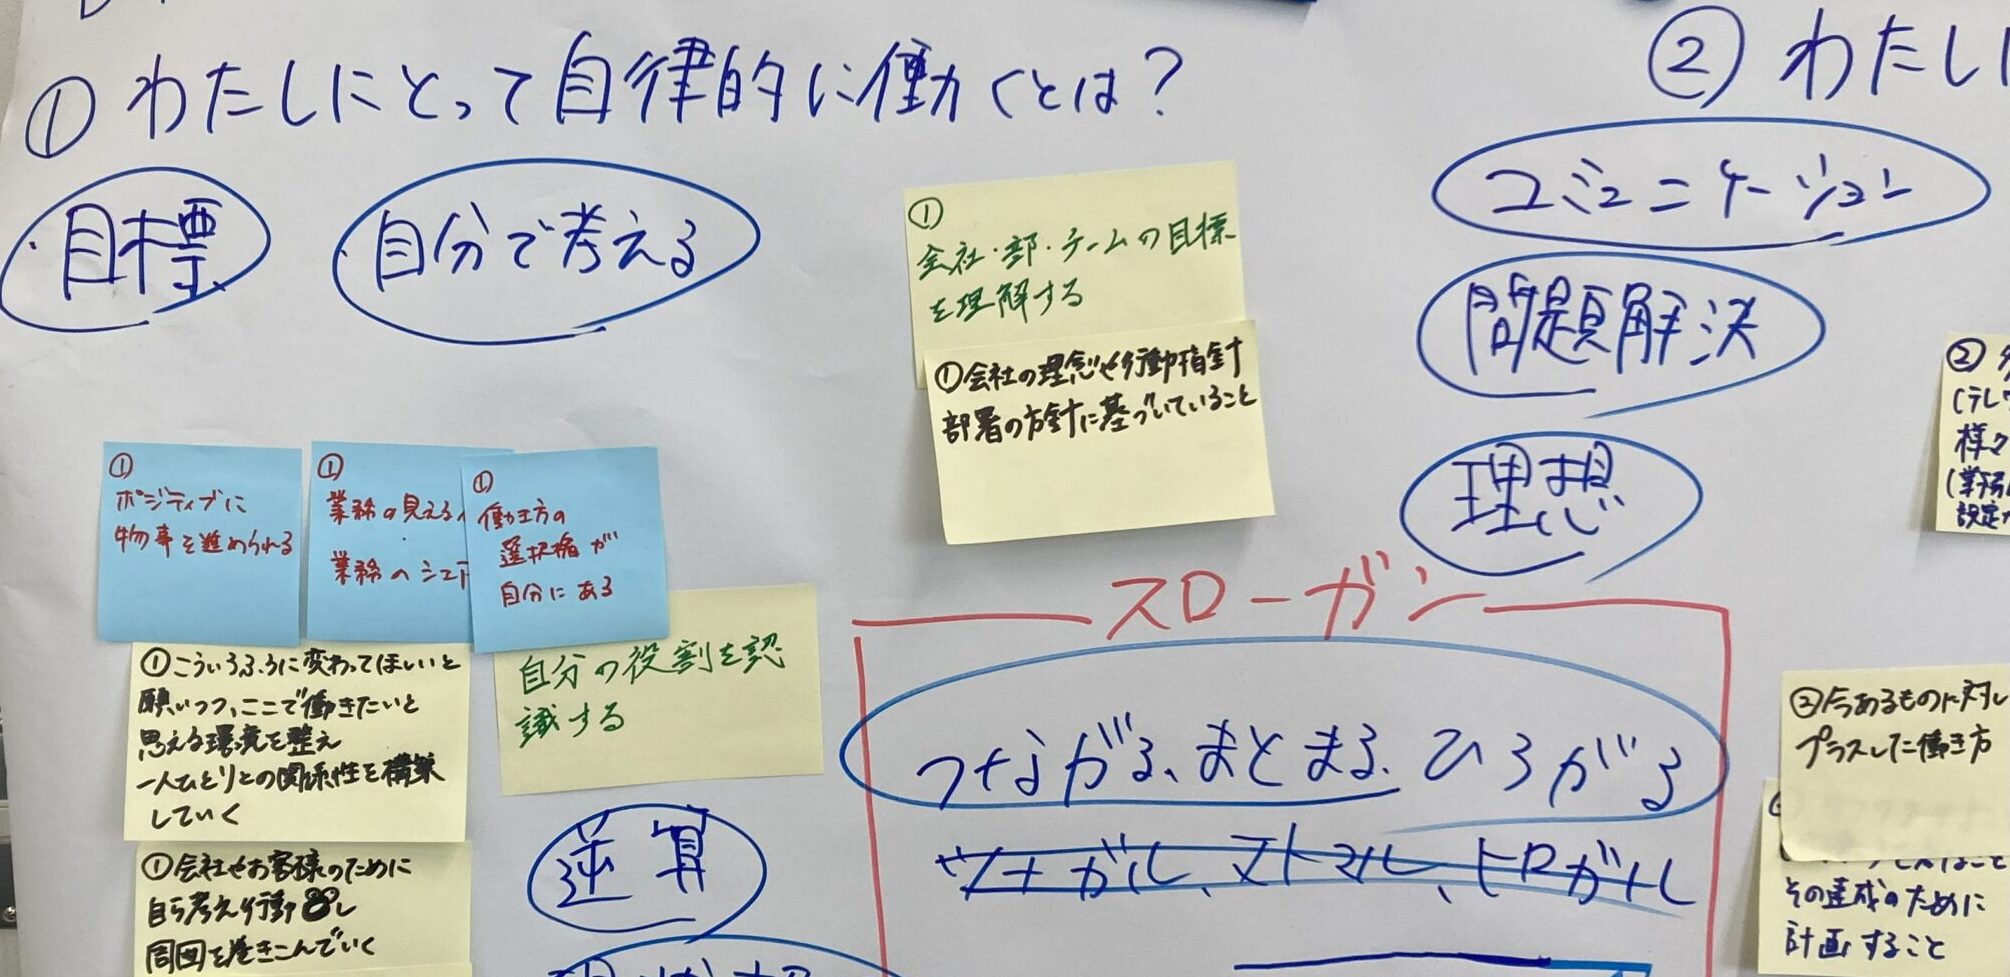 ① わたしにとって自律的に働くとは？
② わたし
・目標
・自分で考える
①
会社・部・チームの目標
を理解する
①会社の理念や行動指針
部署の方針に基づいていること
コミュニケーション
問題解決
理想
①
ポジティブに
物事を進められる
①
業務の見える
業務のシェア
①
働き方の
選択権が
自分にある
①こういうふうに変わってほしいと
願いつつ、ここで働きたいと
思える環境を整え
一人ひとりとの関係性を構築
していく
自分の役割を認
識する
①会社やお客様のために
自ら考え行動し
周囲を巻きこんでいく
逆算
スローガン
つながる、まとまる、ひろがる
ツナガル、マトマル、ヒロガル
②
(テレワ
様々
(業務
設定
②今あるものに対し
プラスした働き方
その達成のために
計画すること